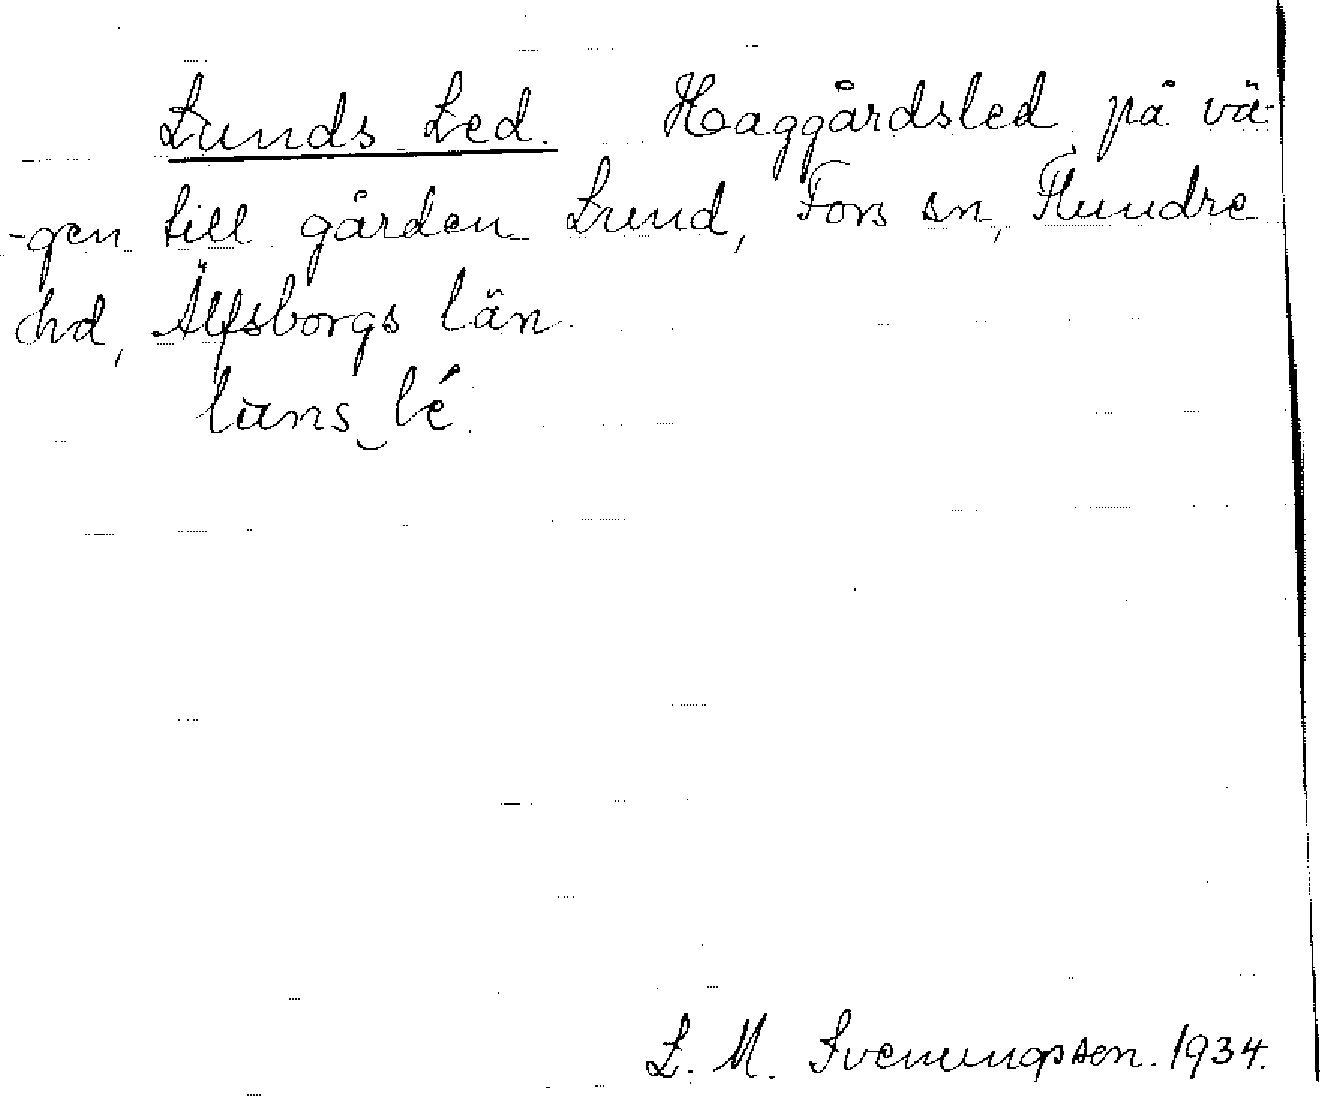 Lunds Led. Haggårdsled på vä-
-gen till gården Lund, Fors sn, Flundre
hd, Älfsborgs län.
luns‿lé.
L. M. Svenungsson. 1934.